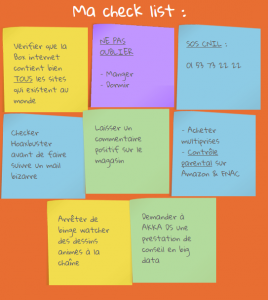 Ma check list :
Vérifier que la
Box internet
contient bien
TOUS les sites
qui existent au
monde
NE PAS
OUBLIER
- Manger
- Dormir
SOS CNIL :
01 53 73 22 22
Checker
Hoaxbuster
avant de faire
suivre un mail
bizarre
Laisser un
commentaire
positif sur le
magasin
- Acheter
multiprises
- Contrôle
parental sur
Amazon & FNAC
Arrêter de
binge watcher
des dessins
animés à la
chaîne
Demander à
AKKA DS une
prestation de
conseil en big
data